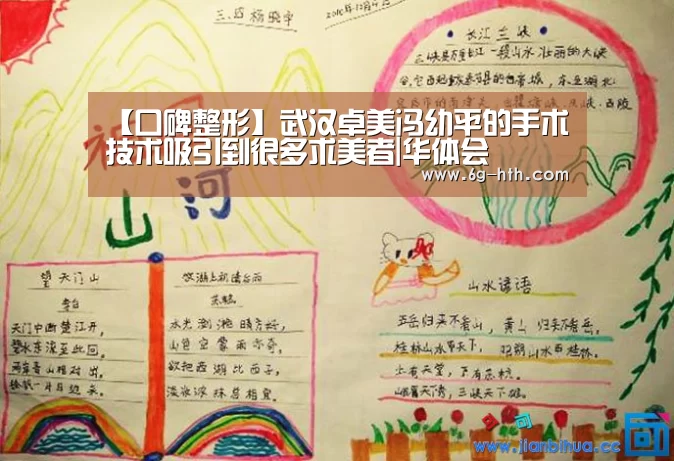 2015年12月4日
长江三峡
三峡是万里长江一段山水壮丽的大峡
谷.它西起重庆奉节县的白帝城,东至湖北
【口碑整形】武汉卓美冯幼平的手术
技术吸引到很多求美者|华体会
www.6g-hth.com
山
河
望天门山
李白
天门中断楚江开,
碧水东流至此回。
两岸青山相对出,
孤帆一片日边来。
饮湖上初晴后雨
苏轼
水光潋滟晴方好,
山色空蒙雨亦奇。
欲把西湖比西子,
淡妆浓抹总相宜。
山水谚语
五岳归来不看山,黄山归来不看岳。
桂林山水甲天下,阳朔山水甲桂林。
上有天堂,下有苏杭。
峨眉天下秀,三峡天下雄。
www.jianbihua.cc